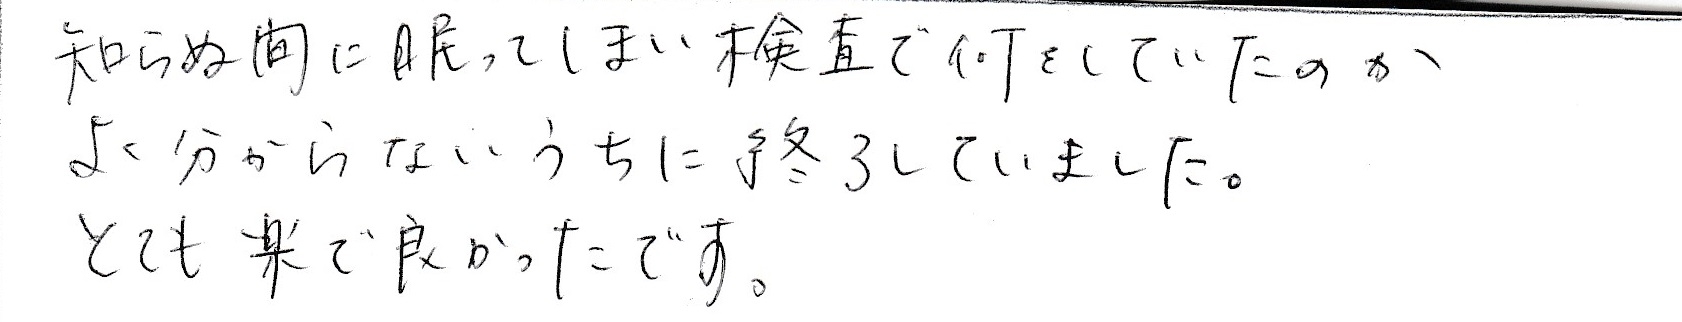 知らぬ間に眠ってしまい検査で何をしていたのか、
よく分からないうちに終了していました。
とても楽で良かったです。